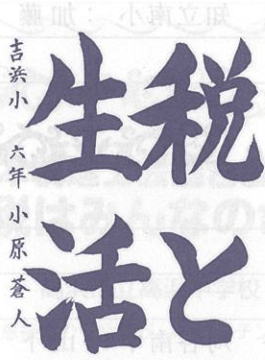 税と
生活
吉浜小 六年 小原蒼人